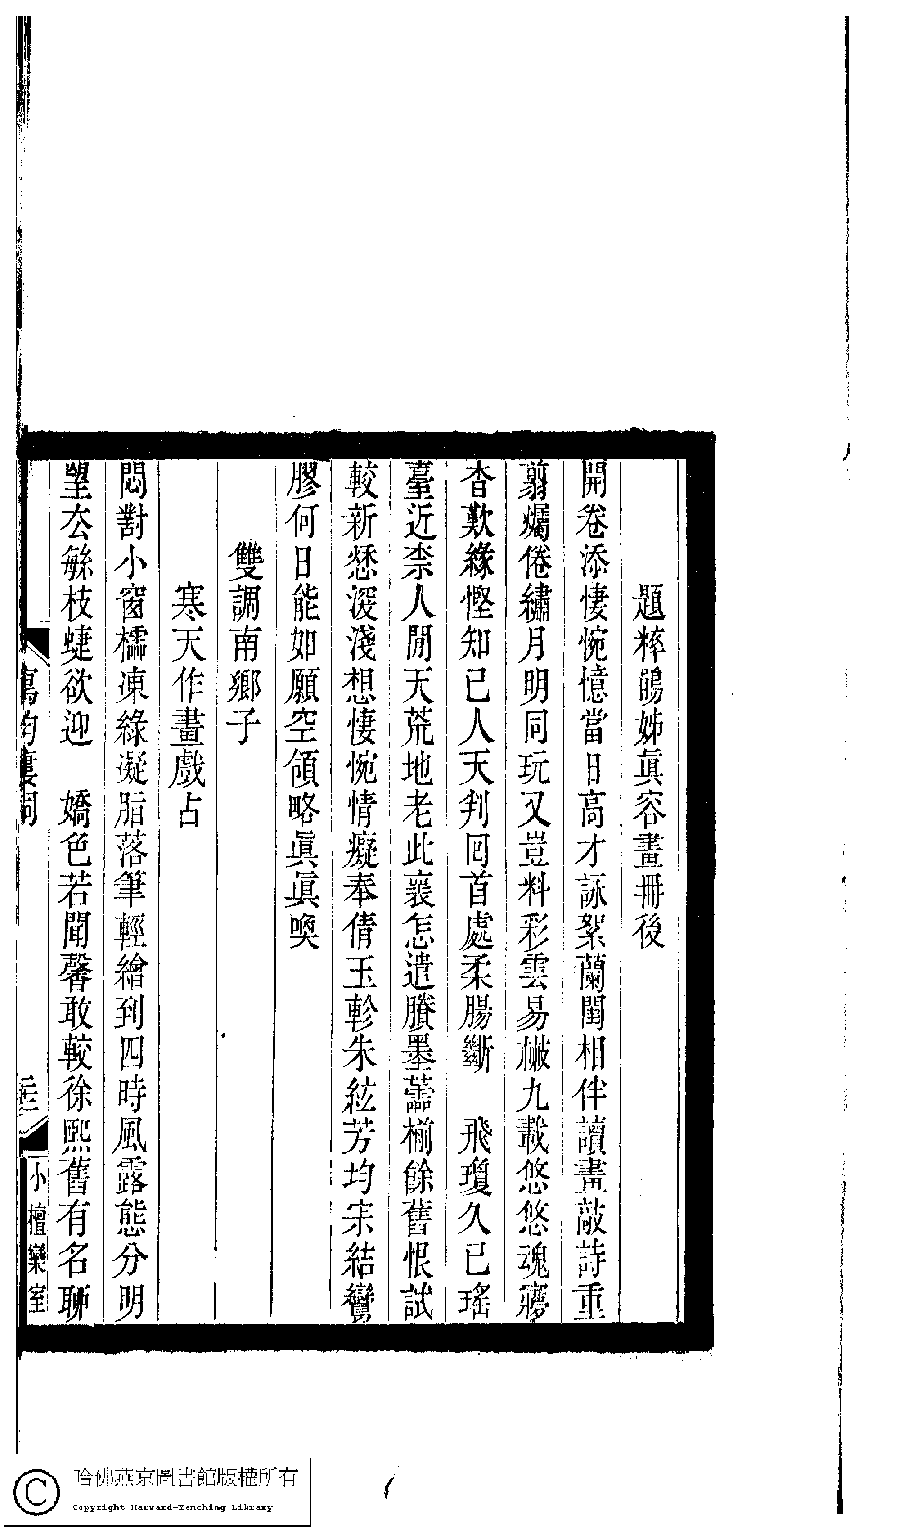 題粹鵾姊眞容畫冊後
開卷添悽惋憶當日高才詠絮蘭閨相伴讀畫敲詩重
翦爥倦繡月明同玩又豈料彩雲易㪚九載悠悠魂夢
杳歎緣慳知己人天判回首處柔腸斷　飛瓊久已瑤
臺近柰人閒天荒地老此衷怎遣賸墨蘦楄餘舊恨試
較新愁深淺想悽惋情癡奉倩玉軫朱絃芳均杗結鸞
膠何日能如願空領略眞眞喚
雙調南鄉子
寒天作畫戲占
悶對小窗櫺凍綠凝脂落筆輕繪到四時風露態分明
朢去緐枝蜨欲迎　嬌色若聞馨敢較徐熙舊有名聊
寫均廔詞
小檀欒室
哈佛燕京圖書館版權所有
Copyright Harvard-Yenching Library